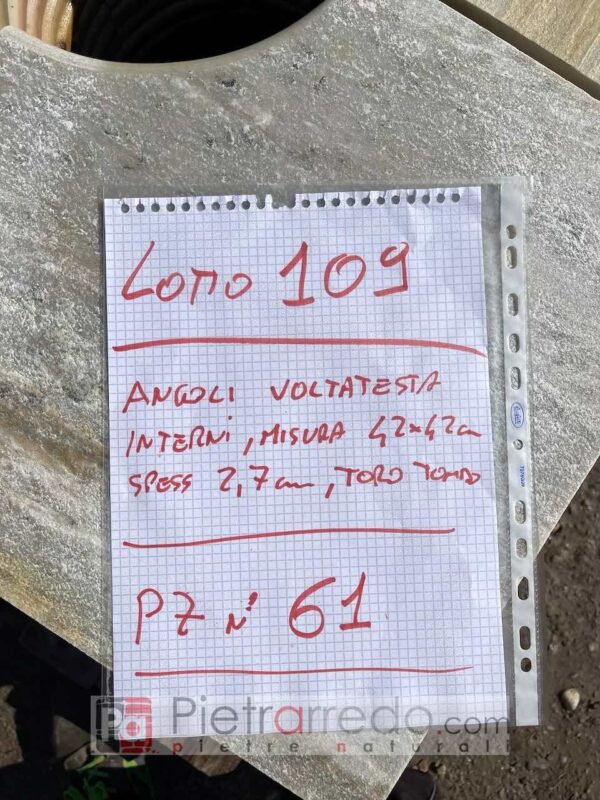 LOTTO 109
ANGOLI VOLTATESTA
INTERNI, MISURA 42x42cm
SPESS 2,7cm, TORO TONDO
PZ N° 61
Pietrarredo.com
pietre naturali